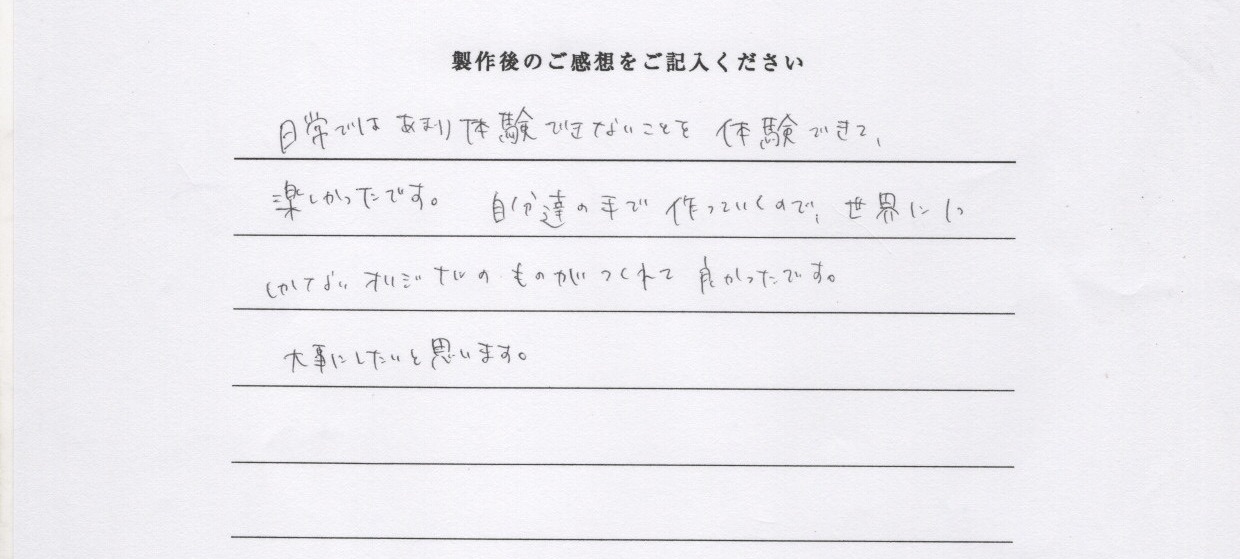 製作後のご感想をご記入ください
日常ではあまり体験できないことを 体験できて、
楽しかったです。 自分達の手で 作っていくので、世界に1つ
しかないオリジナルのものがつくれて 良かったです。
大事にしたいと思います。